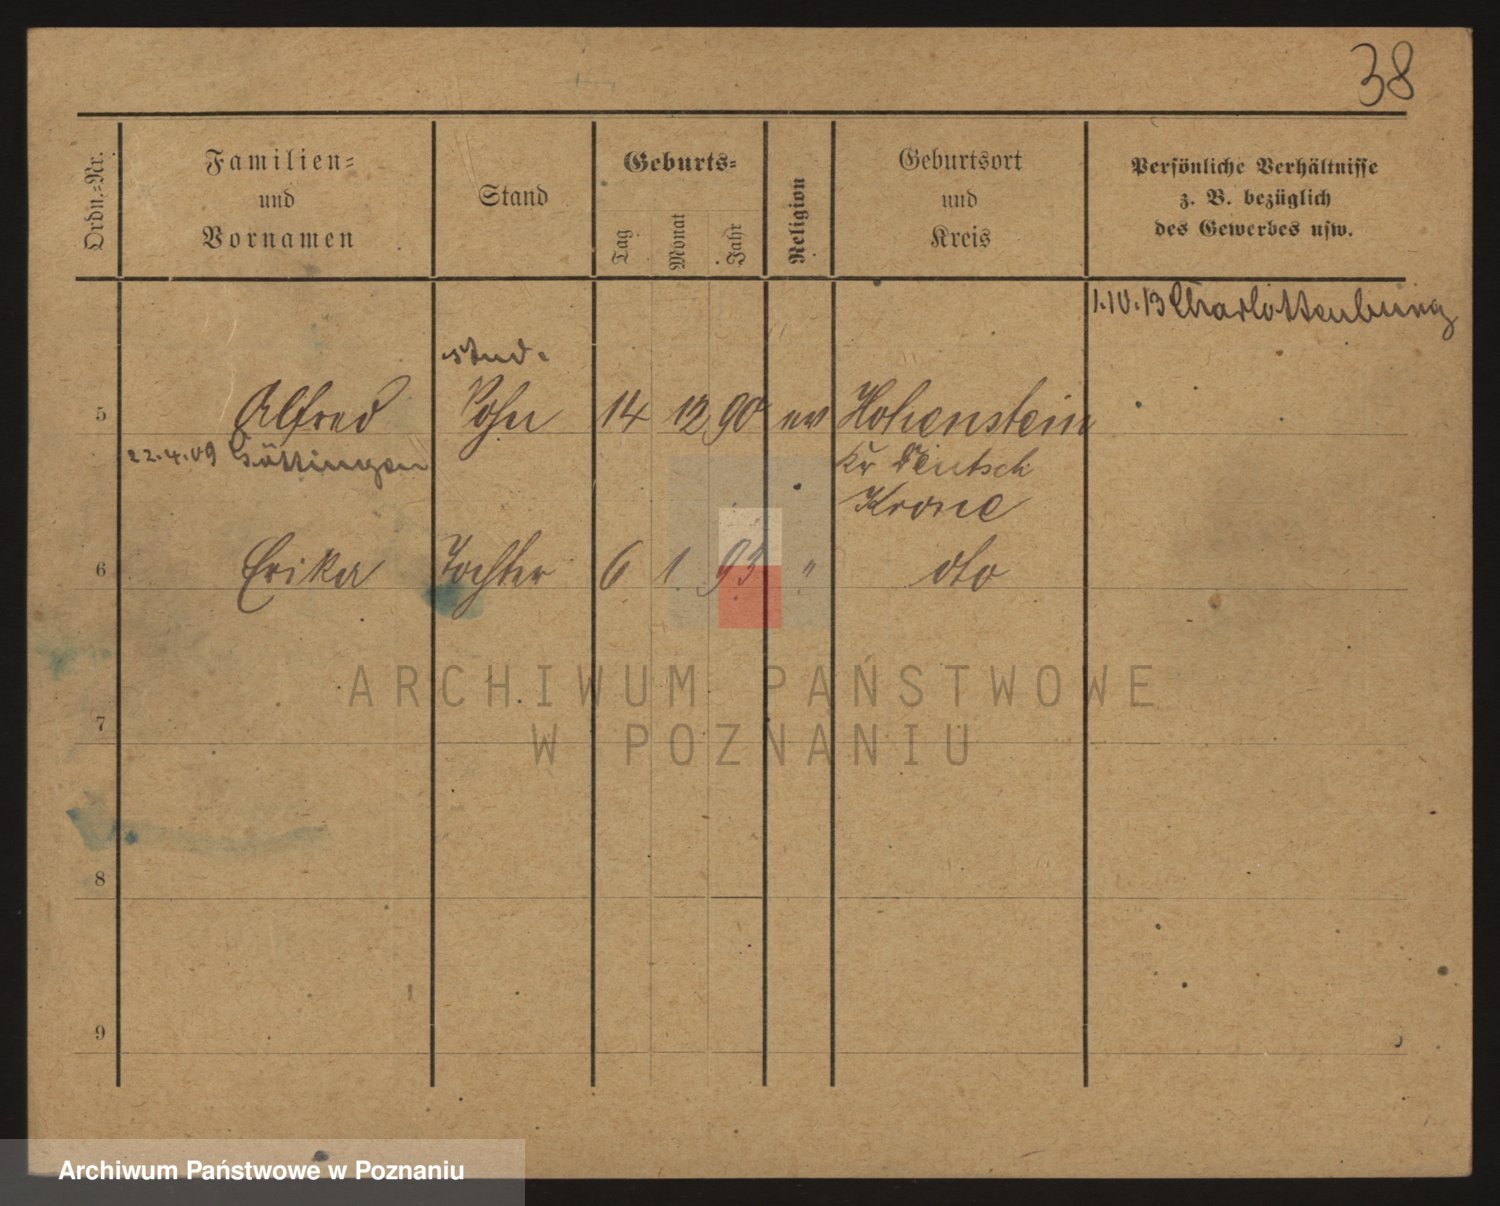 38
Ordn.-Nr.
Familien-
und
Vornamen
Stand
Geburts-
Tag
Monat
Jahr
Religion
Geburtsort
und
Kreis
Persönliche Verhältnisse
z. B. bezüglich
des Gewerbes usw.
1.10.13 Charlottenburg
stud.
5 Alfred Sohn 14 12 90 ev Hohenstein
22.4.09 Göttingen Kr Deutsch
Krone
6 Erika Tochter 6 1 93 " dto
ARCHIWUM PAŃSTWOWE
7
W POZNANIU
8
9
Archiwum Państwowe w Poznaniu